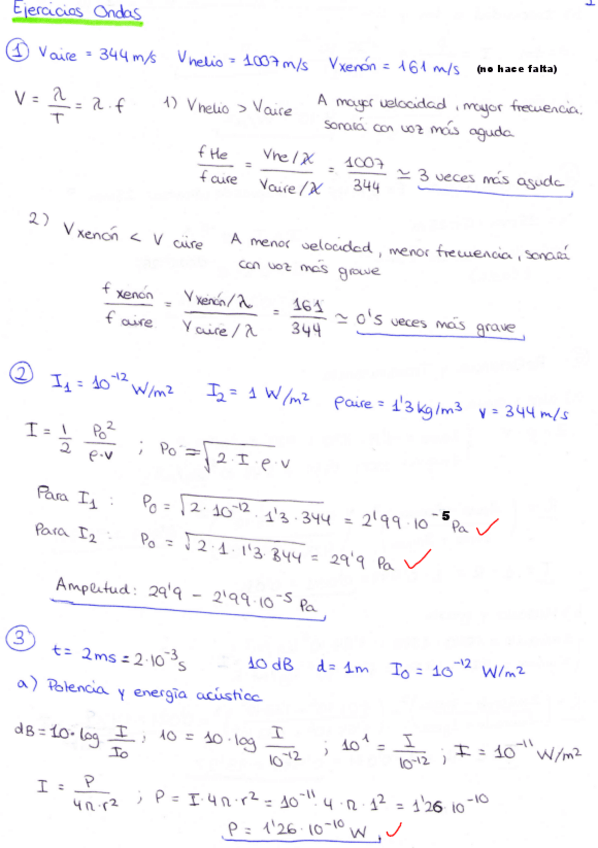 Ejercicios Ondas
1
① Vaire = 344 m/s Vhelio = 1007 m/s Vxenón = 161 m/s (no hace falta)
V = λ/T = λ·f 1) Vhelio > Vaire A mayor velocidad, mayor frecuencia.
sonará con voz más aguda
f He / f aire = Vhe/λ / Vaire/λ = 1007/344 ≃ 3 veces más aguda
2) Vxenón < V aire A menor velocidad, menor frecuencia, sonará
con voz más grave
f xenón / f aire = Vxenón/λ / Vaire/λ = 161/344 ≃ 0'5 veces más grave
② I₁ = 10⁻¹² W/m² I₂ = 1 W/m² ρaire = 1'3 kg/m³ v = 344 m/s
I = 1/2 P₀²/ρ·v ; P₀ = √2·I·ρ·v
Para I₁ : P₀ = √2·10⁻¹²·1'3·344 = 2'99·10⁻⁵ Pa ✓
Para I₂ : P₀ = √2·1·1'3·344 = 29'9 Pa ✓
Amplitud: 29'9 − 2'99·10⁻⁵ Pa
③ t = 2ms = 2·10⁻³s 10 dB d = 1m I₀ = 10⁻¹² W/m²
a) Potencia y energía acústica
dB = 10·log I/I₀ ; 10 = 10·log I/10⁻¹² ; 10¹ = I/10⁻¹² ; I = 10⁻¹¹ W/m²
I = P/4π·r² ; P = I·4π·r² = 10⁻¹¹·4·π·1² = 1'26·10⁻¹⁰
P = 1'26·10⁻¹⁰ W ✓